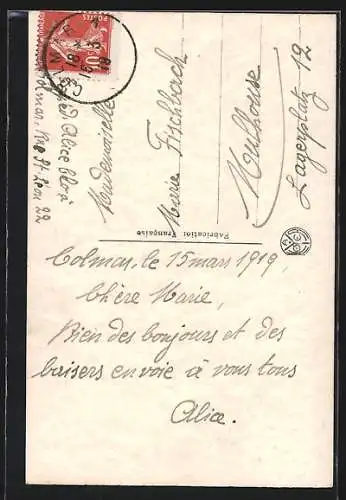 Colmar, le 15 mars 1919,
Chère Marie,
Bien des bonjours et des
baisers envoie à vous tous
Alice.
Mademoiselle
Marie Fischbach
Mulhouse
Lagerplatz 12
Fabrication Française
Alice
Colmar, Rue St Léon 22
POSTES
10
COLMAR